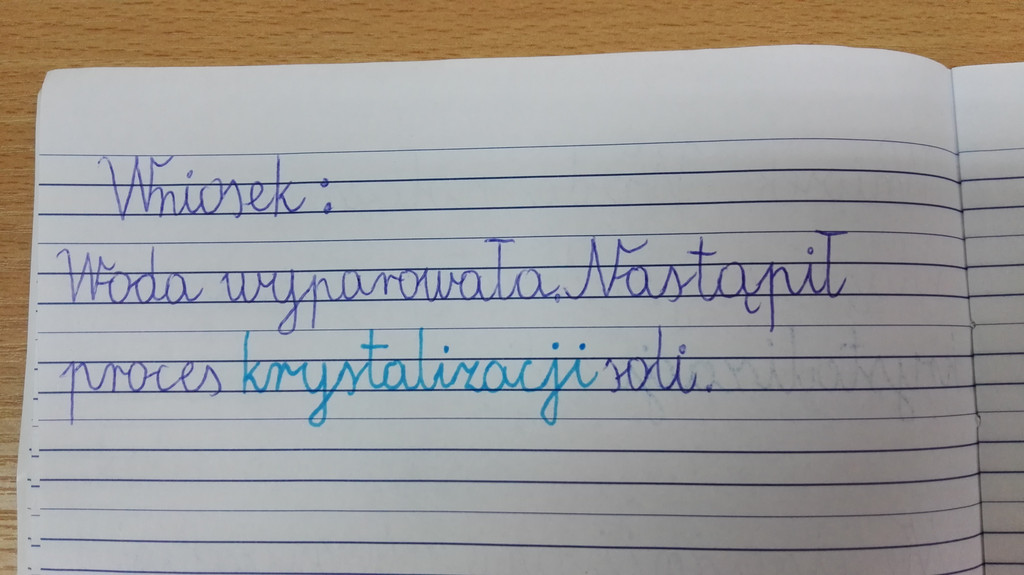 Wniosek:
Woda wyparowała. Nastąpił
proces krystalizacji soli.